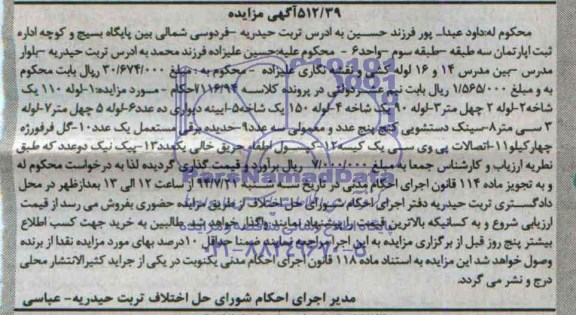 ۵۱۲/۳۹آگهی مزایده
محکوم له:داود عبدا... پور فرزند حسین به ادرس تربت حیدریه –فردوسی شمالی بین پایگاه بسیج و کوچه اداره
ثبت اپارتمان سه طبقه –طبقه سوم –واحد۶ - محکوم علیه:حسین علیزاده فرزند محمد به آدرس تربت حیدریه –بلوار
مدرس –بین مدرس ۱۴ و ۱۶ لوله کشی و نقشه نگاری علیزاده - محکوم به : مبلغ ۳۰/۶۷۴/۰۰۰ ریال بابت محکوم
به و مبلغ ۱/۵۶۵/۰۰۰ ریال بابت نیم عشر دولتی در پرونده کلاسه ۷۱۱۶/۹۴احکام – مورد مزایده:۱-لوله ۱۱۰ یک
شاخه۲-لوله ۲ چهل متر۳-لوله ۹۰ یک شاخه ۴-لوله ۱۵۰ یک شاخه۵-ایینه دیواری ده عدد۶-لوله ۵ چهل متر۷-لوله
۳ سی متر۸-سینک دستشویی گنج پنج عدد و معمولی سه عدد۹-حدیده برقی مستعمل یک عدد۱۰-گل فرفورژه
چهارکیلو۱۱-اتصالات پی وی سی یک کیسه۱۲-کپسول اطفاء حریق خالی یکعدد۱۳-پیک نیک دوعدد که طبق
نظریه ارزیاب و کارشناس جمعا به مبلغ ۷/۰۰۰/۰۰۰ ریال برآورد و قیمت گذاری گردیده لذا به درخواست محکوم له
و به تجویز ماده ۱۱۴ قانون اجرای احکام مدنی در تاریخ سه شنبه ۹۴/۷/۲۱ از ساعت ۱۲ الی ۱۳ بعدازظهر در محل
دادگستری تربت حیدریه دفتر اجرای احکام شورای حل اختلاف از طریق مزایده حضوری بفروش می رسد از قیمت
ارزیابی شروع و به کسانیکه بالاترین قیمت را پیشنهاد نمایند واگذار خواهد شد طالبین به خرید جهت کسب اطلاع
بیشتر پنج روز قبل از برگزاری مزایده به این اجرا مراجعه نمایند ضمنا حداقل ۱۰درصد بهای مورد مزایده نقدا از برنده
وصول خواهد شد این مزایده به استناد ماده ۱۱۸ قانون اجرای احکام مدنی یکنوبت در یکی از جراید کثیرالانتشار محلی
درج و نشر می گردد.
مدیر اجرای احکام شورای حل اختلاف تربت حیدریه- عباسی
ParsNamadData
۰۲۱-۸۸۳۴۹۶۷۰-۵